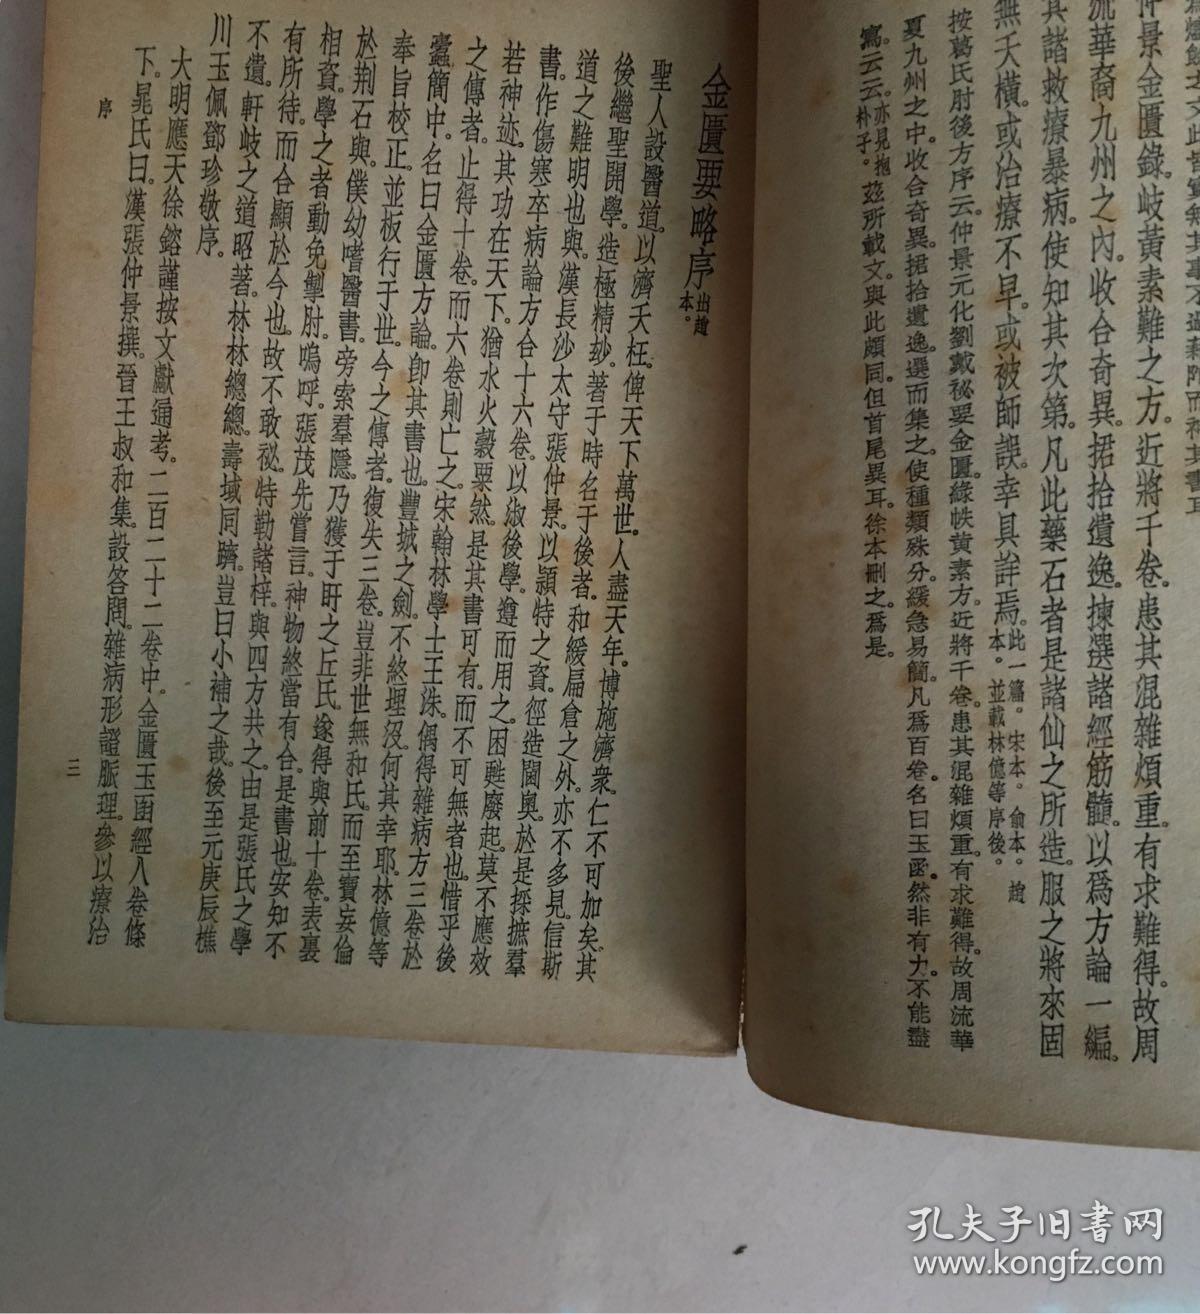 仲景金匱錄岐黃素難之方近將千卷患其混雜煩重有求難得故周
流華裔九州之內收合奇異捃拾遺逸揀選諸經筋髓以爲方論一編
其諸救療暴病使知其次第凡此藥石者是諸仙之所造服之將來固
無夭橫或治療不早或被師誤幸具詳焉此一篇宋本俞本趙本並載林億等序後
按葛氏肘後方序云仲景元化劉戴祕要金匱綠帙黄素方近將千卷患其混雜煩重有求難得故周流華
夏九州之中收合奇異捃拾遺逸選而集之使種類殊分緩急易簡凡爲百卷名曰玉函然非有力不能盡
寫云云亦見抱朴子茲所載文與此頗同但首尾異耳徐本刪之爲是
金匱要略序出趙本
聖人設醫道以濟夭枉俾天下萬世人盡天年博施濟衆仁不可加矣其
後繼聖開學造極精妙著于時名于後者和緩扁倉之外亦不多見信斯
道之難明也與漢長沙太守張仲景以頴特之資徑造閫奥於是採摭羣
書作傷寒卒病論方合十六卷以淑後學遵而用之困甦廢起莫不應效
若神迹其功在天下猶水火穀粟然是其書可有而不可無者也惜乎後
之傳者止得十卷而六卷則亡之宋翰林學士王洙偶得雜病方三卷於
蠹簡中名曰金匱方論卽其書也豐城之劍不終埋没何其幸耶林億等
奉旨校正並板行于世今之傳者復失三卷豈非世無和氏而至寶妄倫
於荆石與僕幼嗜醫書旁索羣隱乃獲于旴之丘氏遂得與前十卷表裏
相資學之者動免掣肘嗚呼張茂先嘗言神物終當有合是書也安知不
有所待而合顯於今也故不敢祕特勒諸梓與四方共之由是張氏之學
不遺軒岐之道昭著林林總總壽域同躋豈曰小補之哉後至元庚辰樵
川玉佩鄧珍敬序
大明應天徐鎔謹按文獻通考二百二十二卷中金匱玉函經八卷條
下晁氏曰漢張仲景撰晉王叔和集設答問雜病形證脈理參以療治
序
三
孔夫子旧书网
www.kongfz.com